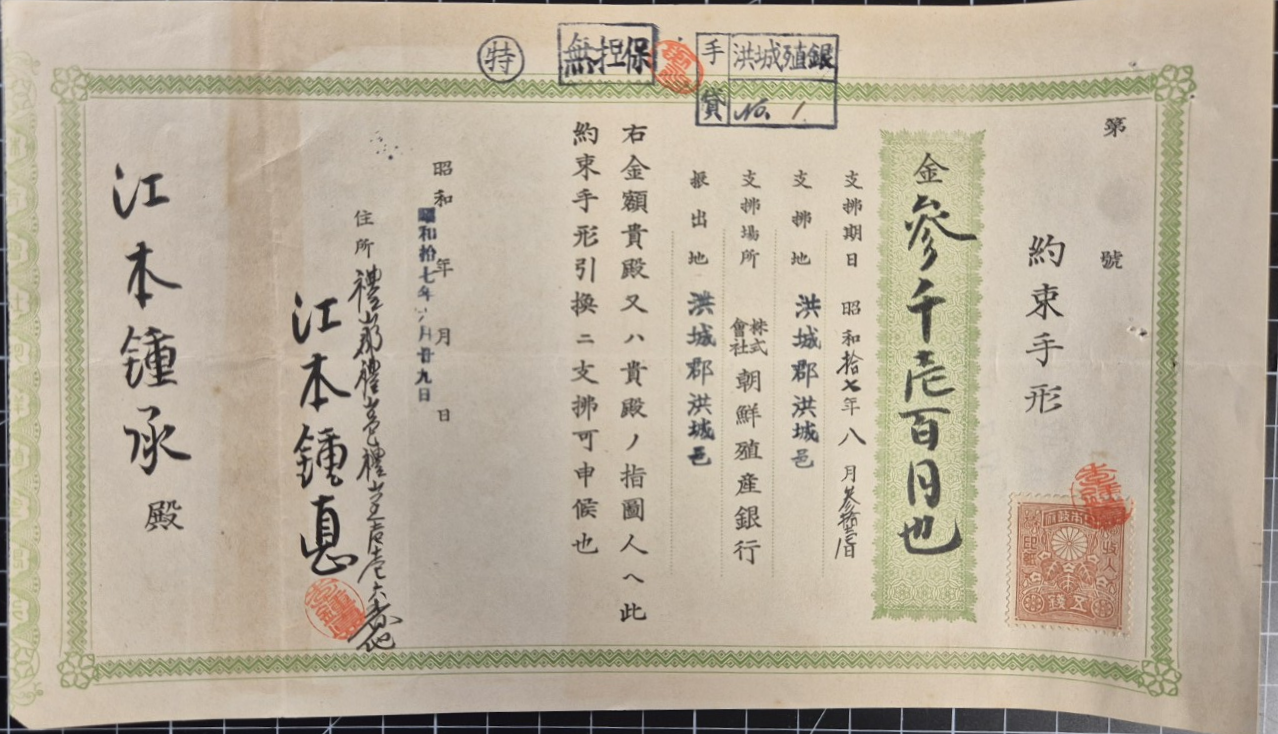 特
無担保
手貸
洪城殖銀
No. 1
第 號
約束手形
收入印紙
五錢
金參千壱百円也
支拂期日 昭和拾七年八月参拾壱日
支拂地 洪城郡洪城邑
支拂場所 株式會社朝鮮殖産銀行
振出地 洪城郡洪城邑
右金額貴殿又ハ貴殿ノ指圖人ヘ此
約束手形引換ニ支拂可申候也
昭和 年 月 日
昭和拾七年 月廿九日
住所 禮山郡禮山邑禮山
江本鍾惪
江本鍾承 殿